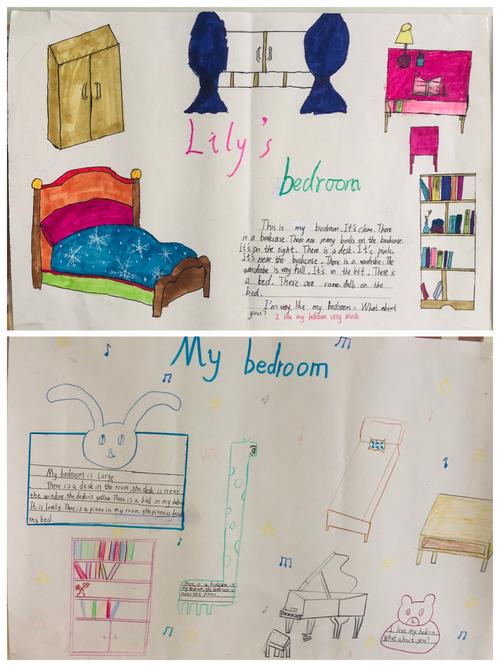 Lily's
bedroom
This is my bedroom. It's clean. There
is a bookcase. There are many books on the bookcase.
It's on the right. There is a desk. It's pink.
It's near the bookcase. There is a wardrobe. The
wardrobe is very full. It's on the left. There is
a bed. There are some dolls on the
bed.
I'm very like my bedroom. What about
you?
I like my bedroom very much
My bedroom
My bedroom is large
There is a desk in the room, the desk is near
the window, the desk is yellow. There is a bed in my
It is lovely. There is a piano in my room, the piano is
my bed.
There is a bookcase in
my bedroom, the bookcase is
near the piano
I love my bedroom
What about you?